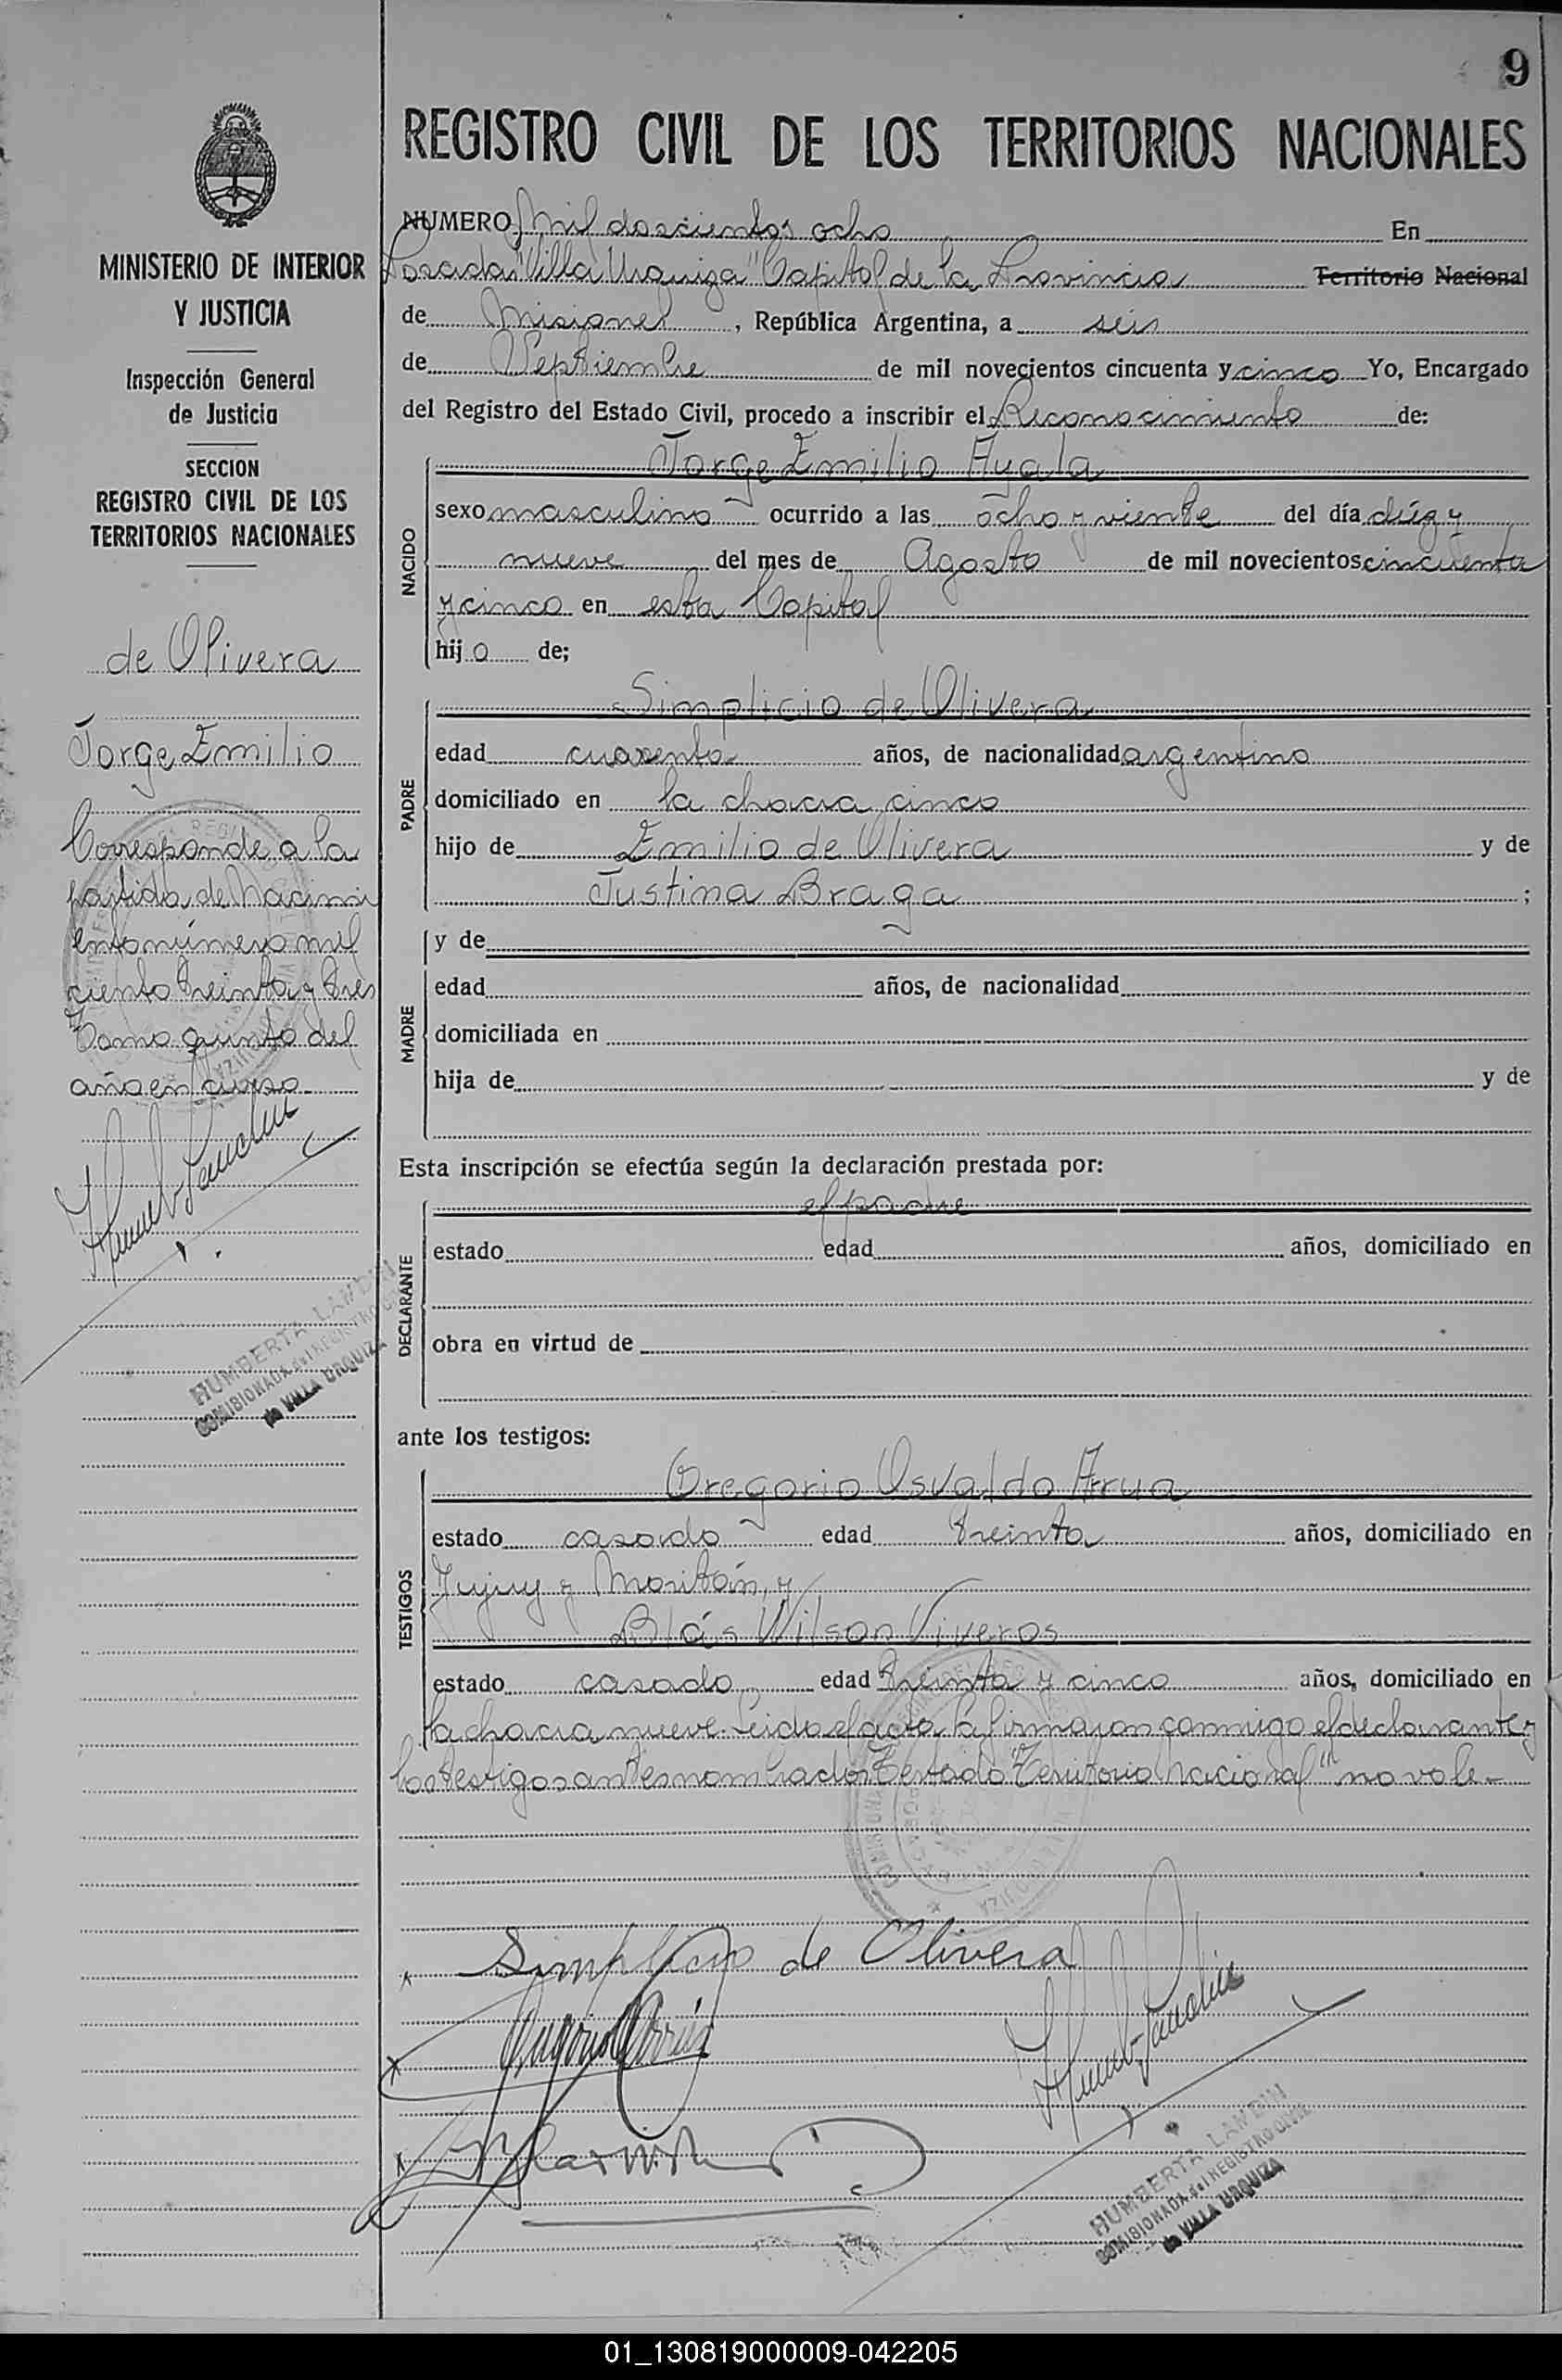 9
REGISTRO CIVIL DE LOS TERRITORIOS NACIONALES
MINISTERIO DE INTERIOR
Y JUSTICIA
Inspección General
de Justicia
SECCION
REGISTRO CIVIL DE LOS
TERRITORIOS NACIONALES
de Olivera
Jorge Emilio
Corresponde a la
partida de Nacimi
ento número mil
ciento treinta y tres
Tomo quinto del
año en curso
HUMBERTA LANDIN
COMISIONADA del REGISTRO CIVIL
de VILLA URQUIZA
NUMERO Mil doscientos ocho En
Posadas "Villa Urquiza" Capital de la Provincia Territorio Nacional
de Misiones, República Argentina, a seis
de Septiembre de mil novecientos cincuenta y cinco Yo, Encargado
del Registro del Estado Civil, procedo a inscribir el Reconocimiento de:
Jorge Emilio Ayala
NACIDO
sexo masculino ocurrido a las ocho y viente del día diéz y
nueve del mes de Agosto de mil novecientos cincuenta
y cinco en esta Capital
hijo de;
PADRE
Simplicio de Olivera
edad cuarenta años, de nacionalidad argentino
domiciliado en la chacra cinco
hijo de Emilio de Olivera y de
Justina Braga ;
MADRE
y de
edad años, de nacionalidad
domiciliada en
hija de y de
Esta inscripción se efectúa según la declaración prestada por:
DECLARANTE
el padre
estado edad años, domiciliado en
obra en virtud de
ante los testigos:
TESTIGOS
Gregorio Osvaldo Arrua
estado casado edad treinta años, domiciliado en
Jujuy y Moritán, y
Blás Wilson Viveros
estado casado edad treinta y cinco años, domiciliado en
la chacra nueve. Leida el acta la firmaron conmigo el declarante y
los testigos antes nombrados Testado "Territorio Nacional" no vale.-
Simplicio de Olivera
HUMBERTA LANDIN
COMISIONADA del REGISTRO CIVIL
de VILLA URQUIZA
01_130819000009-042205